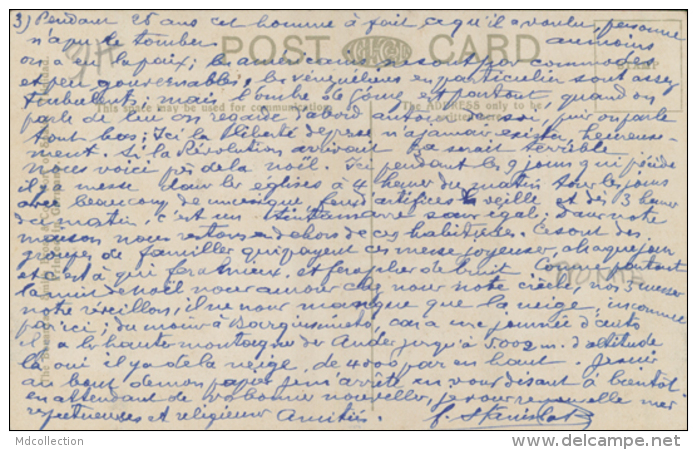 3) Pendant 26 ans cet homme a fait ce qu'il a voulu, personne
n'a pu le tomber. au moins
POST CARD
on a eu la paix; les américains ne sont pas commodes
et peu gouvernables, les vénézuéliens en particulier sont assez
turbulents; mais l'ombre de Gómez est partout, quand on
This space may be used for communication. The ADDRESS only to be
written here.
parle de lui on regarde d'abord autour de soi, puis on parle
tout bas; Ici la liberté de presse n'a jamais existé, heureuse-
ment. Si la Révolution arrivait ça serait terrible
nous voici près de la noël. Ici pendant les 9 jours qui précède
il y a messe dans les églises à 4 heures du matin tous les jours
avec beaucoup de musique, feux d'artifices la veille et dès 3 heures
du matin, c'est un tintamarre sans égal; dans notre
maison nous restons en dehors de ces habitudes. Ce sont des
groupes de familles qui payent ces messes joyeuses, chaque jour
et c'est à qui fera mieux, et fera plus de bruit Comme partout
la nuit de Noël nous aurons chez nous notre crèche, nos 3 messes
notre réveillon, il ne nous manquera que la neige, inconnue
par ici; du moins à Barquisimeto, car à une journée d'auto
il y a les hautes montagnes des Andes jusqu'à 5002 m. d'altitude
là oui il y a de la neige, de 4000 par en haut. Je suis
au bout de mon papier je m'arrête en vous disant à bientôt
en attendant de vos bonnes nouvelles, je vous renouvelle mes
respectueuses et religieuses Amitiés. f. Stanislas
Mdcollection
www.delcampe.net